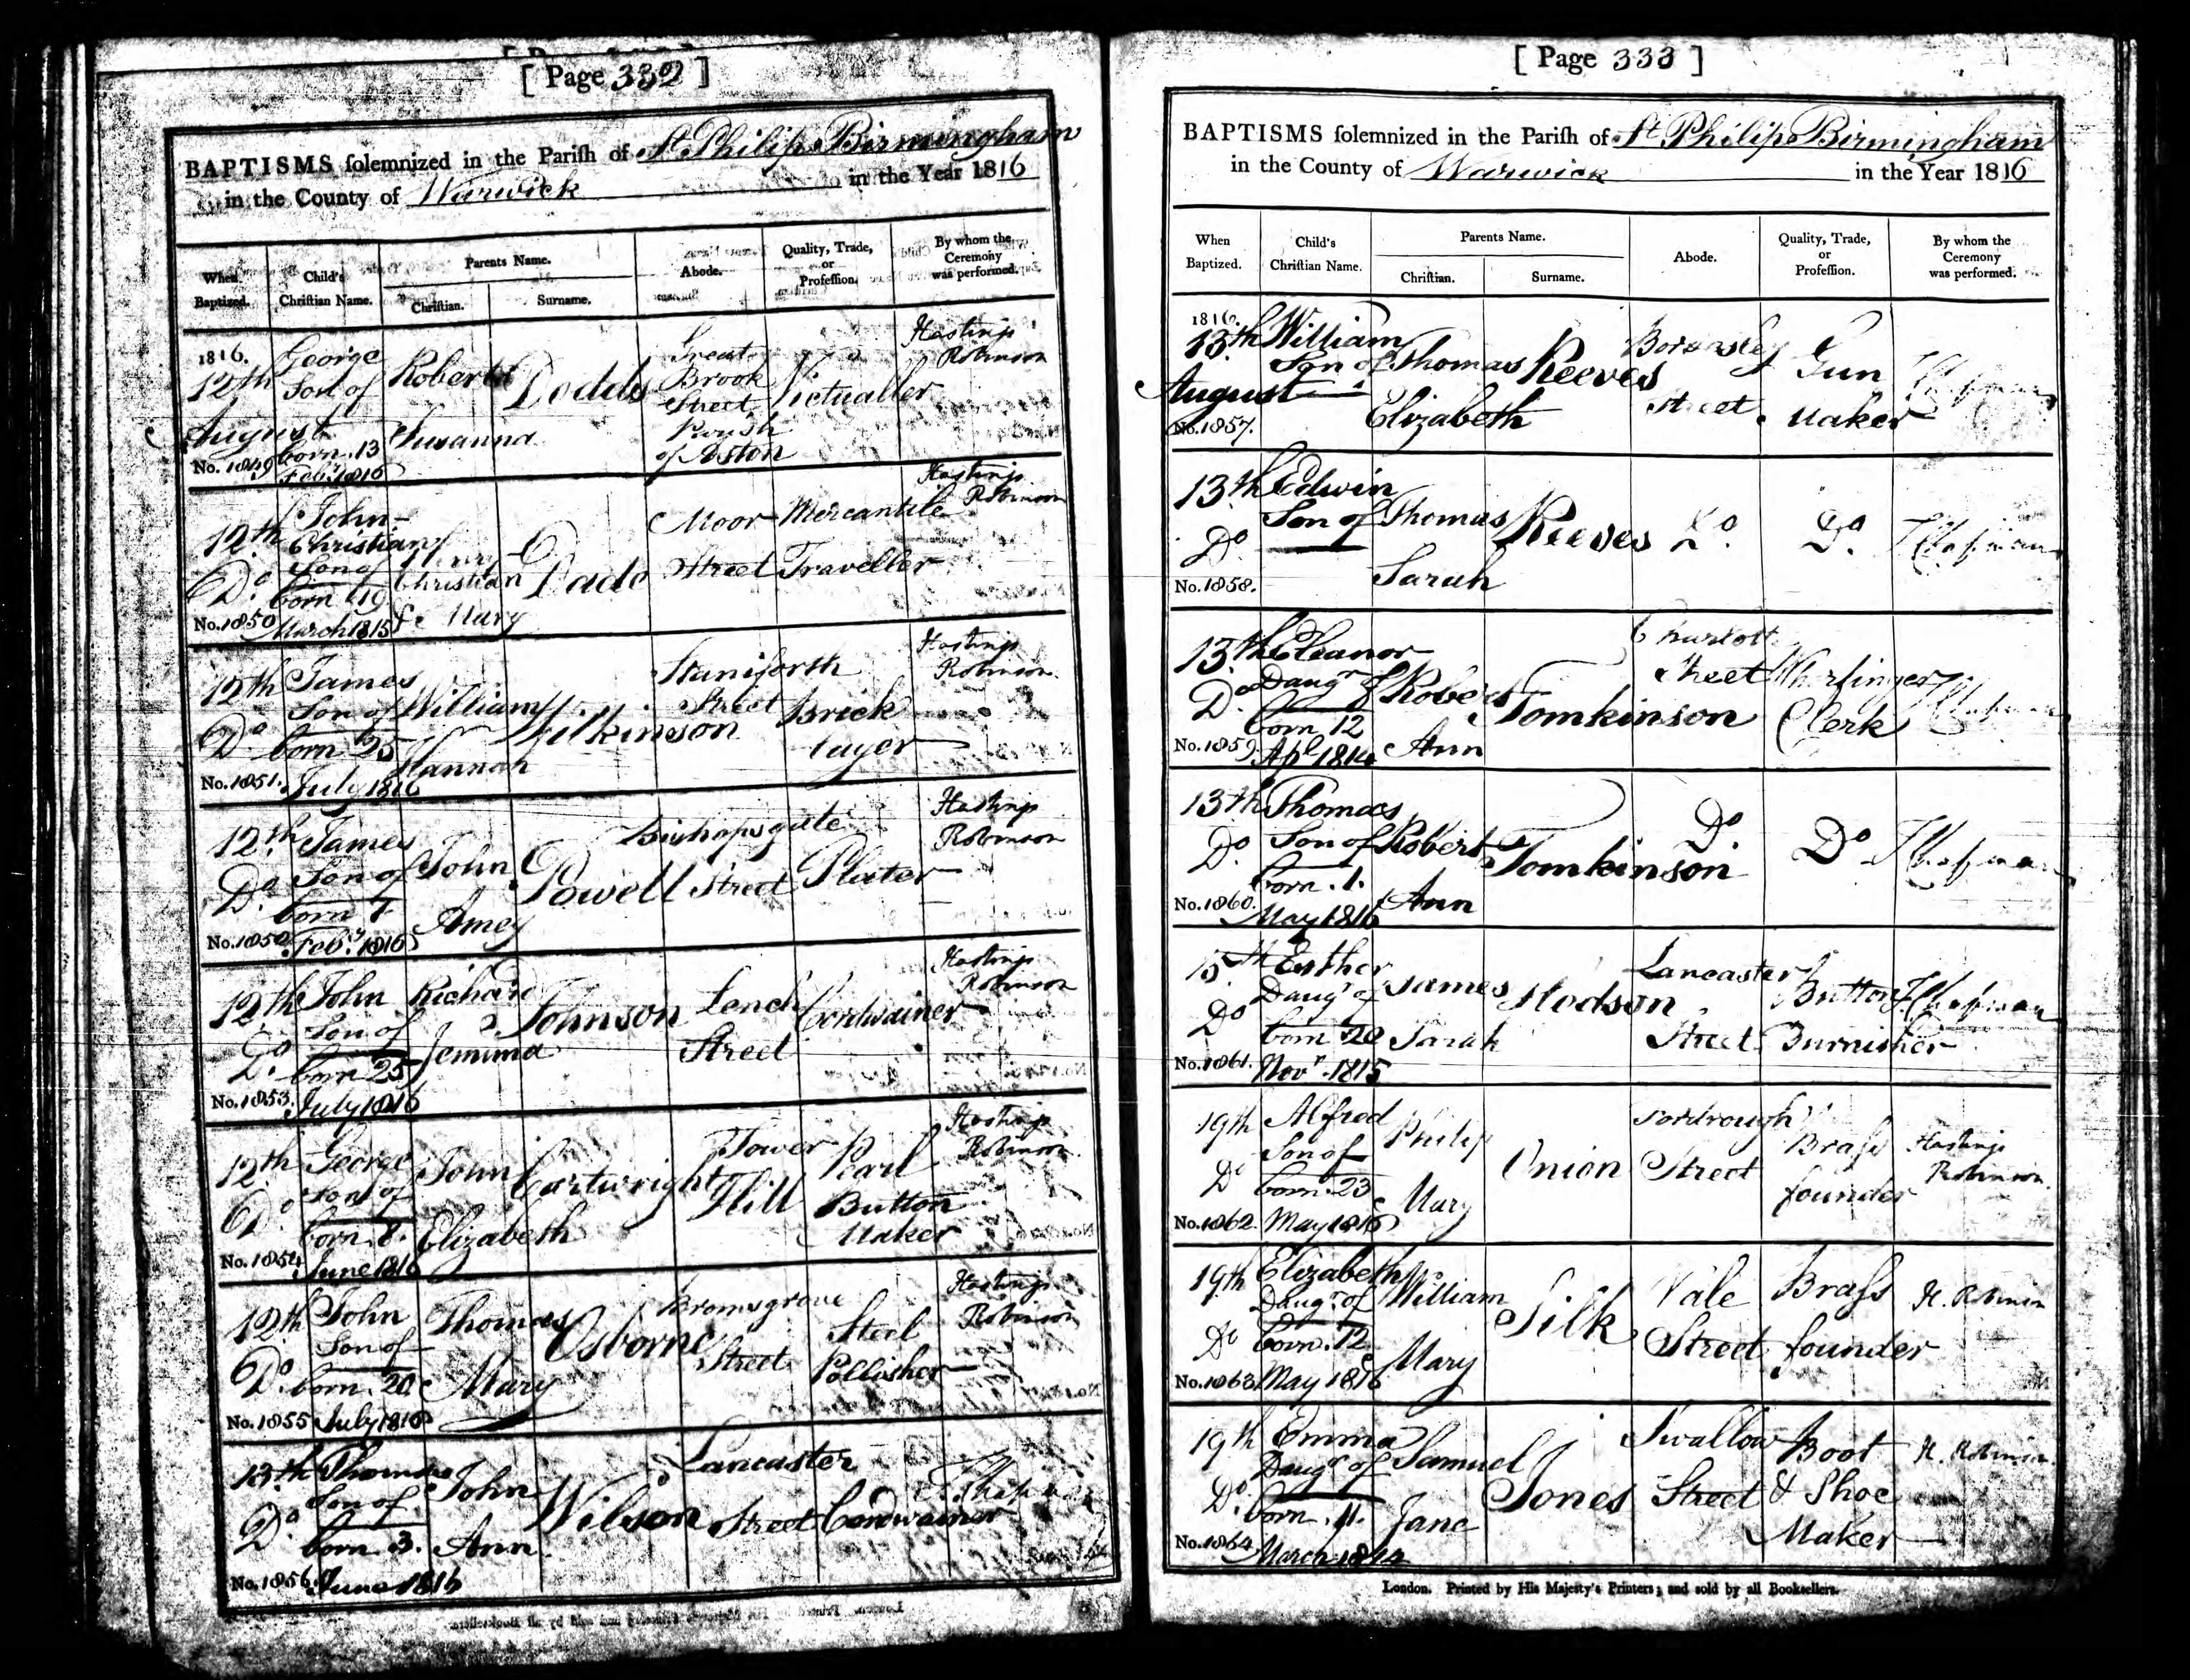 [ Page 332 ]
BAPTISMS solemnized in the Parish of St Philips Birmingham
in the County of Warwick in the Year 1816
When Baptized.
Child's Christian Name.
Parents Name.
Christian.
Surname.
Abode.
Quality, Trade, or Profession.
By whom the Ceremony was performed.
1816.
12th August
No. 1849
George Son of
born 13 Feby 1816
Robert Susanna
Dodds
Great Brook Street Parish of Aston
Victualler
Hastings Robinson
12th Do
No. 1850
John Christian Son of
born 19 March 1815
Henry Christian & Mary
Dade
Moor Street
Mercantile Traveller
Hastings Robinson
12th Do
No. 1851.
James Son of
born 25 July 1816
William Hannah
Wilkinson
Staniforth Street
Brick layer
Hastings Robinson
12th Do
No. 1852
James Son of
born 7 Feby 1816
John Amey
Powell
Bishopsgate Street
Plater
Hastings Robinson
12th Do
No. 1853.
John Son of
born 25 July 1816
Richard Jemima
Johnson
Lench Street
Cordwainer
Hastings Robinson
12th Do
No. 1854
George Son of
born 8. June 1816
John Elizabeth
Cartwright
Tower Hill
Pearl Button Maker
Hastings Robinson
12th Do
No. 1855
John Son of
born 20 July 1816
Thomas Mary
Osborne
Bromsgrove Street
Steel Pollisher
Hastings Robinson
13th Do
No. 1856
Thomas Son of
born 3. June 1816
John Ann
Wilson
Lancaster Street
Cordwainer
[ Page 333 ]
BAPTISMS solemnized in the Parish of St Philips Birmingham
in the County of Warwick in the Year 1816
When Baptized.
Child's Christian Name.
Parents Name.
Christian.
Surname.
Abode.
Quality, Trade, or Profession.
By whom the Ceremony was performed.
1816.
13th August
No. 1857.
William Son of
Thomas Elizabeth
Reeves
Street
Gun Maker
13th Do
No. 1858.
Edwin Son of
Thomas Sarah
Reeves
Do
Do
Chapman
13th Do
No. 1859
Eleanor Daugr of
born 12 Apl 1814
Robert Ann
Tomkinson
Charlott Street
Wharfinger Clerk
Chapman
13th Do
No. 1860.
Thomas Son of
born 1. May 1816
Robert Ann
Tomkinson
Do
Do
Chapman
15th Do
No. 1861.
Esther Daugr of
born 20 Novr 1815
James Sarah
Hodson
Lancaster Street
Button Burnisher
Chapman
19th Do
No. 1862.
Alfred Son of
born 23 May 1816
Philip Mary
Onion
Street
Brass founder
Hastings Robinson
19th Do
No. 1863
Elizabeth Daugr of
born 12 May 1816
William Mary
Silk
Vale Street
Brass founder
H. Robinson
19th Do
No. 1864
Emma Daugr of
born 11. March 1814
Samuel Jane
Jones
Swallow Street
Boot & Shoe Maker
H. Robinson
London. Printed by His Majesty's Printers; and sold by all Booksellers.